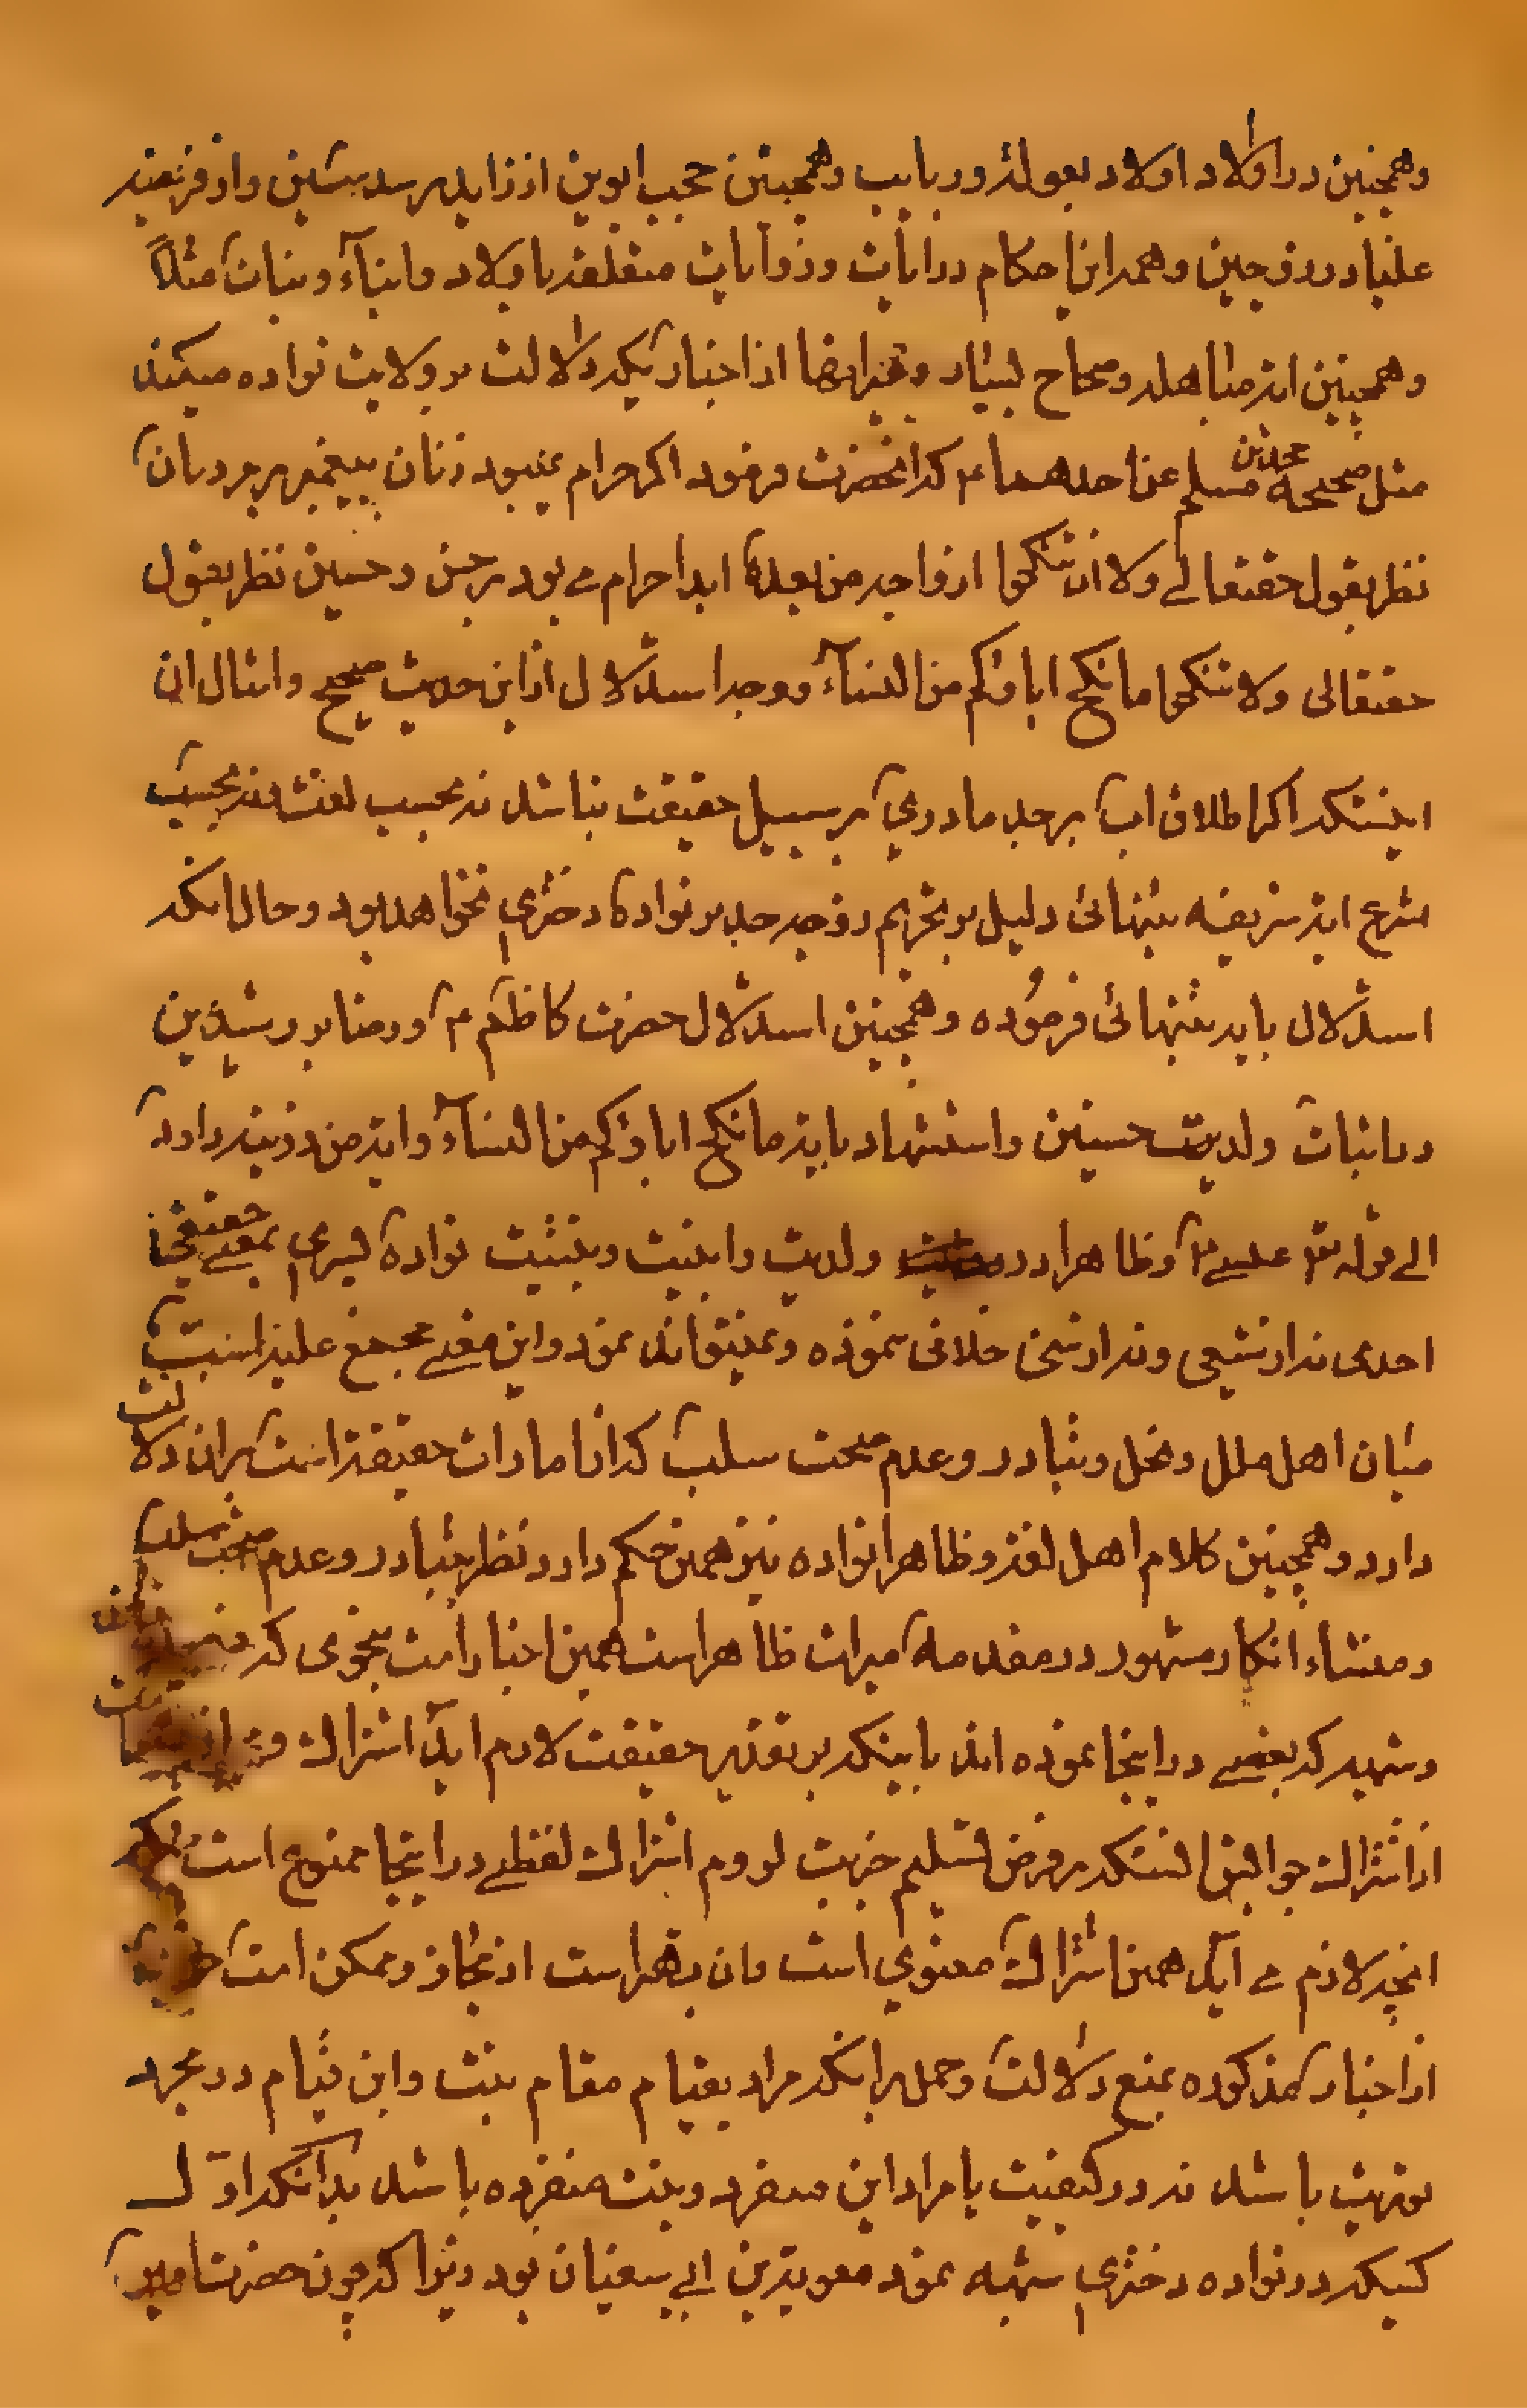 وهمچنین در اولاد اولاد بعولة و ربایب وهمچنین حجب ابوین از زاید بر سدسین و از فریضه
علیا در زوجین و همه این احکام در ایات و روایات متعلقه باولاد و ابناء و بنات مثلا
وهمچنین ایه مباهله و صحاح بسیار و غیر اینها از اخباریکه دلالت بر ولادیت نواده میکند
مثل صحیحه محمد بن مسلم عن احدهما ع که انحضرت فرمود اکر حرام نمیبود زنان پیغمبر بر مردمان
نظر بقول حقتعالی ولا ان تنکحوا ازواجه من بعده ابدا حرام می بود بر حسن و حسین نظر بقول
حقتعالی ولا تنکحوا ما نکح اباؤکم من النساء و وجه استدلال از این حدیث صحیح و امثال ان
اینستکه اکر اطلاق اب بر جد مادری بر سبیل حقیقت نباشد نه بحسب لغت و نه بحسب
شرع ایه شریفه بتنهائی دلیل بر تحریم زوجه جد بر نواده دختری نخواهد بود و حال انکه
استدلال بایه بتنهائی فرموده وهمچنین استدلال حضرت کاظم ع و رضا بر رشیدین
در اثبات ولدیت حسنین و استشهاد بایه ما نکح اباؤکم من النساء و ایه من ذریته داود
الی قوله تع عیسی و ظاهرا در ولدیت و ابنیت و بنتیت نواده پسری بمعنی حقیقی
احدی نه از شیعی و نه از سنی خلافی ننموده و نمیتواند نمود و این معنی مجمع علیه است
میان اهل ملل و نحل و تبادر و عدم صحت سلب که از امارات حقیقة است بر ان دلالت
دارد وهمچنین کلام اهل لغة و ظاهرا نواده نیز همین حکم دارد نظر بتبادر و عدم صحت سلب
و منشاء انکار مشهور در مقدمه میراث ظاهر است همین اخبار است بنحوی که
و شهید که بعضی در اینجا نموده اند باینکه بر تقدیر حقیقت لازم اید اشتراک و
از اشتراک جوابش انستکه بر فرض تسلیم خیریت لزوم اشتراک لفظی در اینجا ممنوع است
انچه لازم می اید همین اشتراک معنوی است و ان بهتر است از مجاز و ممکن است
از اخبار مذکوره بمنع دلالت و حمل بر انکه مراد بقیام مقام بنت و ابن قیام در مجرد
توریث باشد نه در کیفیت یا مراد ابن منفرد و بنت منفرده باشد بدانکه اول
کسیکه در نواده دختری شبهه نمود معویة بن ابی سفیان بود زیرا که چون حضرت امیر